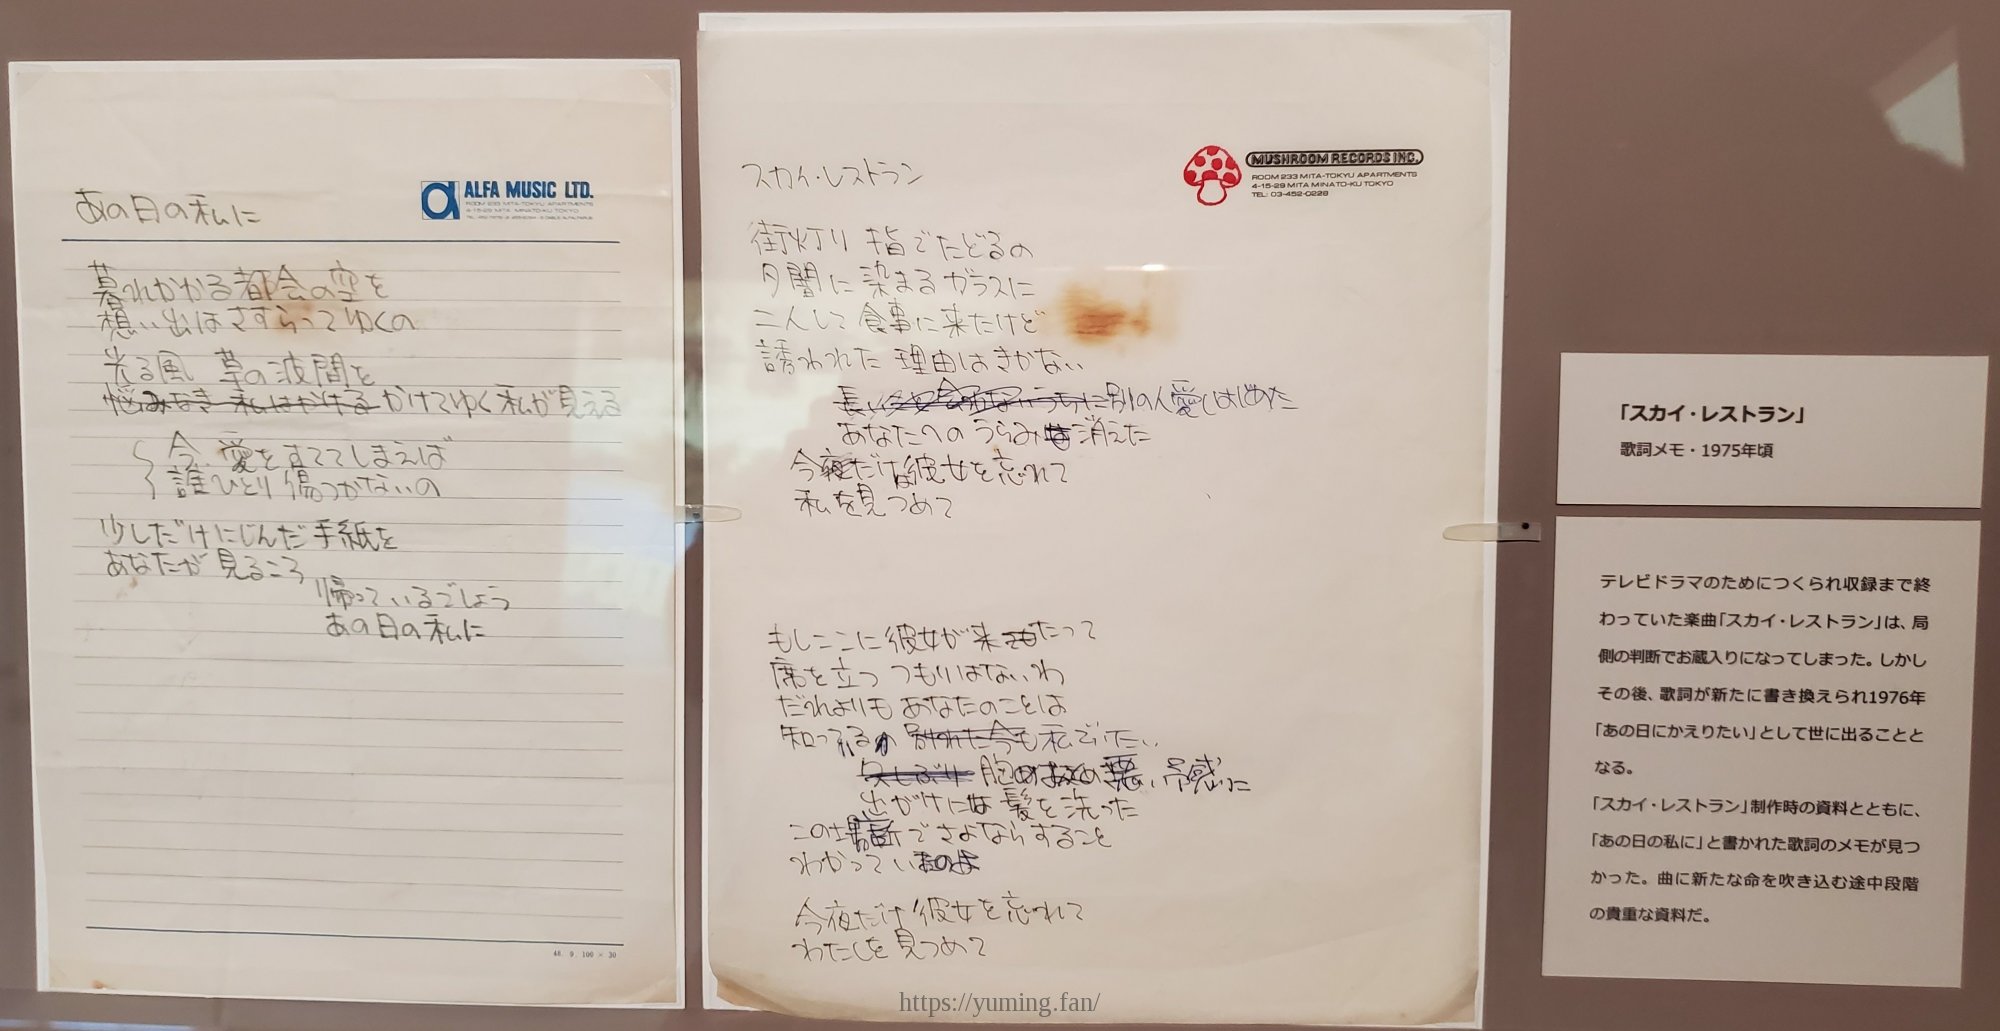 あの日の私に
ALFA MUSIC LTD.
ROOM 233 MITA-TOKYU APARTMENTS
4-15-29 MITA MINATO-KU TOKYO
暮れかかる都会の空を
想い出はさすらってゆくの
光る風 草の波間を
悩みなき 私はかける かけてゆく私が見える
今 愛をすててしまえば
誰ひとり 傷つかないの
少しだけにじんだ手紙を
あなたが見るころ
帰っているでしょう
あの日の私に
48. 9. 100 × 30
スカイ・レストラン
MUSHROOM RECORDS INC.
ROOM 233 MITA-TOKYU APARTMENTS
4-15-29 MITA MINATO-KU TOKYO
TEL: 03-452-0228
街灯り 指でたどるの
夕闇に 染まるガラスに
二人して 食事に来たけど
誘われた 理由はきかない
長い 会わないうちに別の人愛しはじめた
あなたへの うらみも消えた
今夜だけは彼女を忘れて
私を見つめて
もしここに彼女が来たって
席を立つ つもりはないわ
だれよりも あなたのことは
知っているの 別れた今も 私でいたい
久しぶり 胸の 悪い予感に
出がけには 髪を洗った
この場所でさよならすること
わかってい
今夜だけ彼女を忘れて
わたしを見つめて
「スカイ・レストラン」
歌詞メモ・1975年頃
テレビドラマのためにつくられ収録まで終
わっていた楽曲「スカイ・レストラン」は、局
側の判断でお蔵入りになってしまった。しかし
その後、歌詞が新たに書き換えられ1976年
「あの日にかえりたい」として世に出ることと
なる。
「スカイ・レストラン」制作時の資料とともに、
「あの日の私に」と書かれた歌詞のメモが見つ
かった。曲に新たな命を吹き込む途中段階
の貴重な資料だ。
https://yuming.fan/